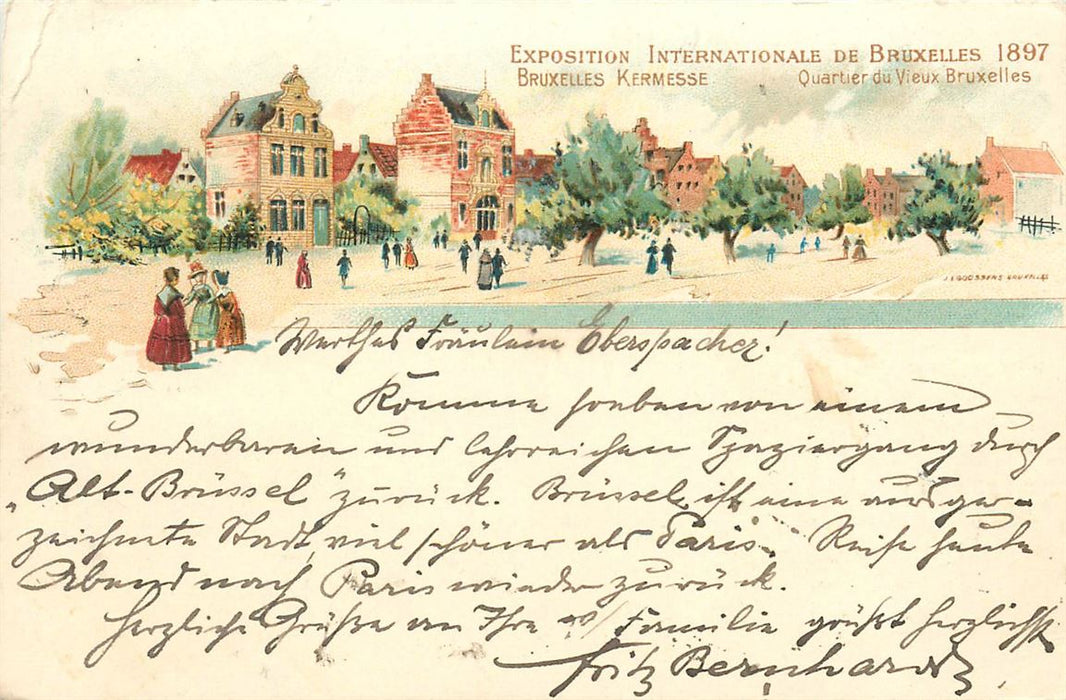 EXPOSITION INTERNATIONALE DE BRUXELLES 1897
BRUXELLES KERMESSE Quartier du Vieux Bruxelles
J.L. GOOSSENS BRUXELLES
Werthes Fräulein Eberspächer!
Komme soeben von einem
wunderbaren und lehrreichen Spaziergang durch
„Alt-Brüssel" zurück. Brüssel ist eine ausge-
zeichnete Stadt, viel schöner als Paris. Reise heute
Abend nach Paris wieder zurück.
Herzliche Grüße an Ihre Familie grüßt herzlichst
Fritz Bernhardt